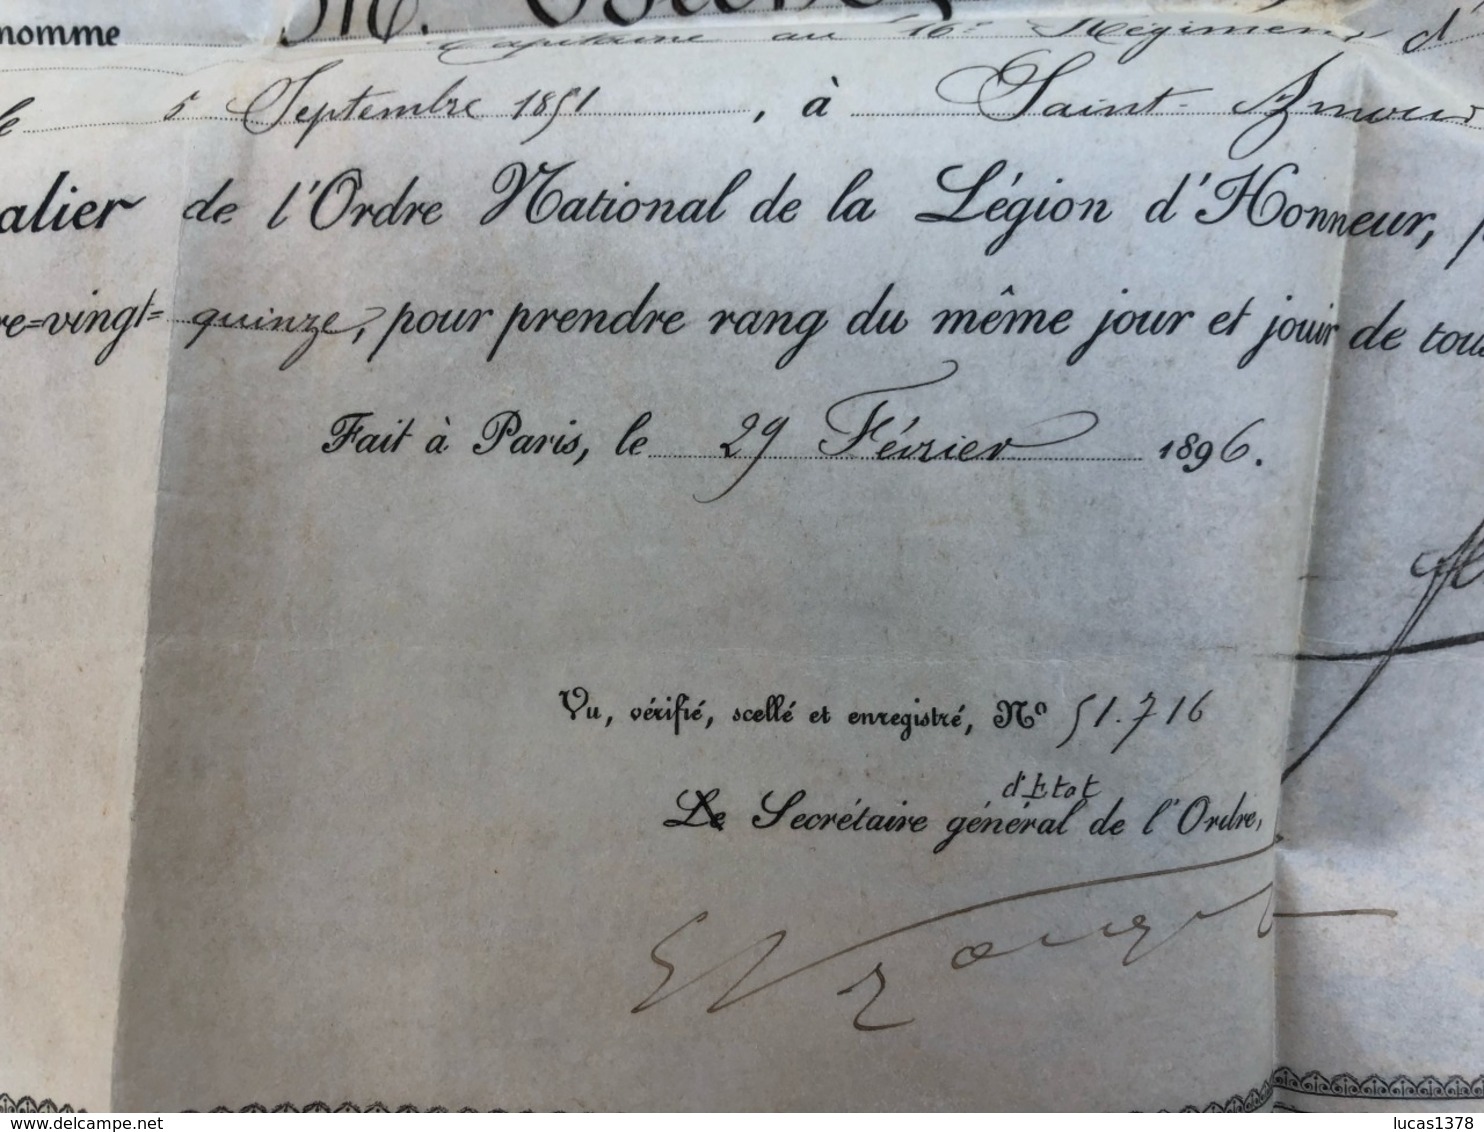 nomme M.
Capitaine au 16e Régiment d'
le 5 Septembre 1851, à Saint-Amour
alier de l'Ordre National de la Légion d'Honneur,
re=vingt=quinze, pour prendre rang du même jour et jouir de tous
Fait à Paris, le 29 Février 1896.
Vu, vérifié, scellé et enregistré, No 51.716
d'Etat
Le Secrétaire général de l'Ordre,
www.delcampe.net
lucas1378